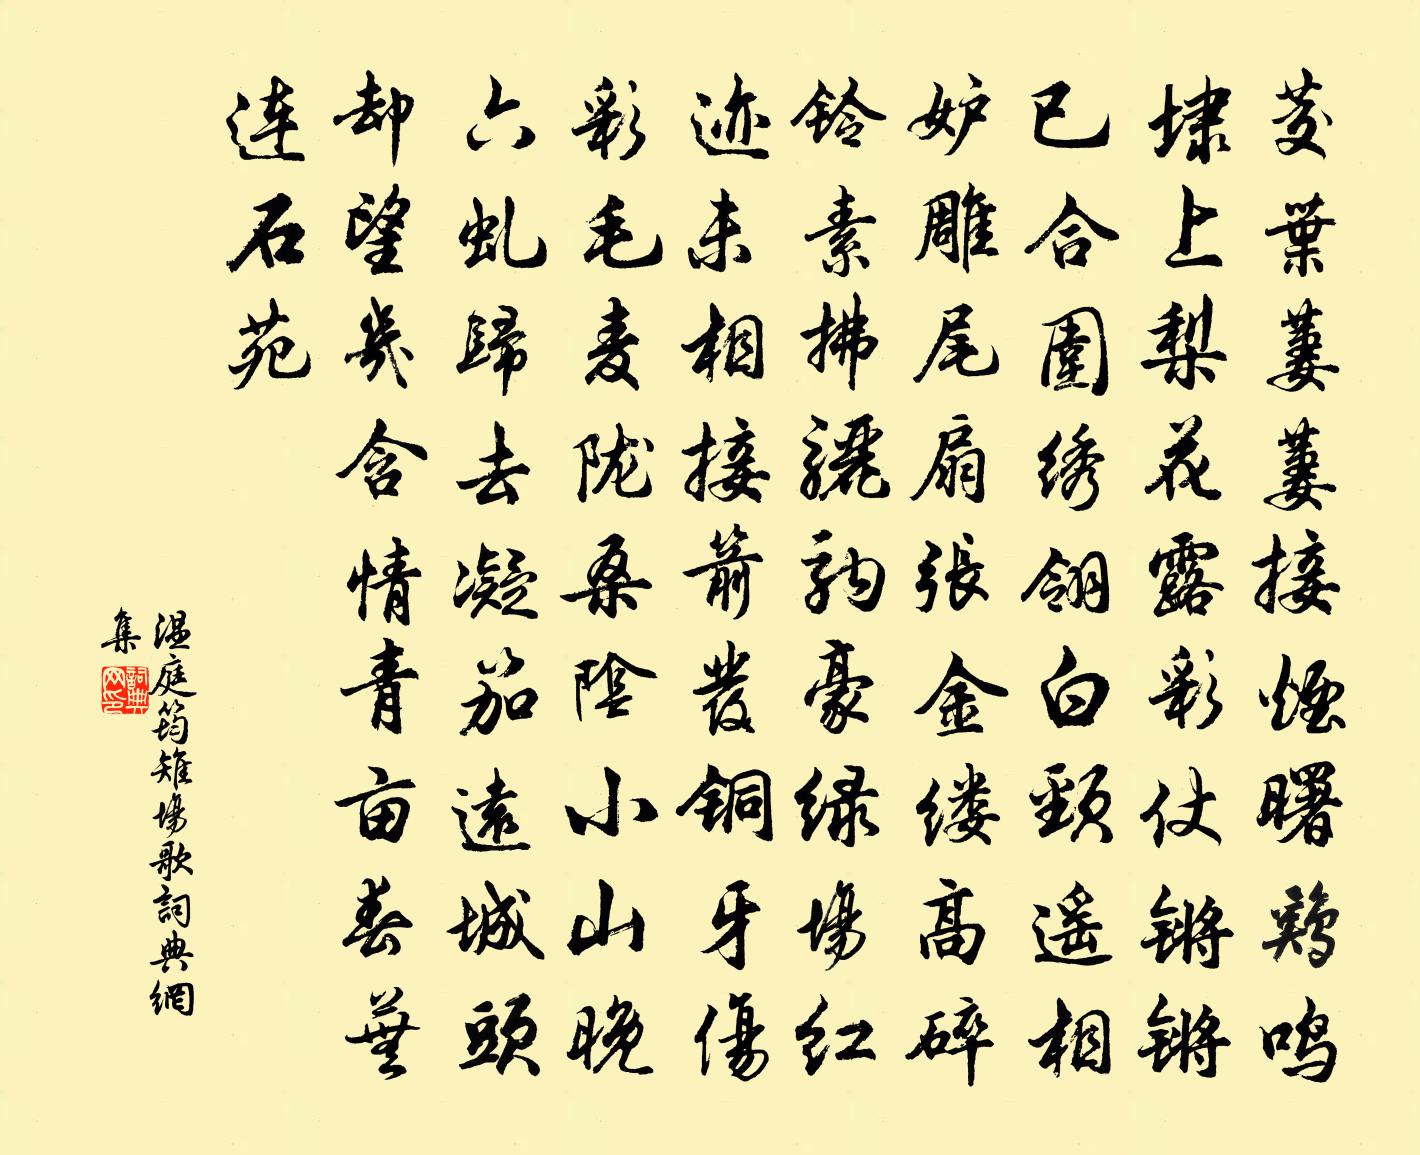 茭葉萋萋接煙曙鷄鳴
埭上梨花露彩仗锵锵
已合圍绣翎白頸遥相
妒雕尾扇張金缕高碎
铃素拂骊驹豪绿場红
迹未相接箭發铜牙傷
彩毛麦陇桑陰小山晚
六虬歸去凝笳遠城頭
却望幾含情青亩春蕪
連石苑
温庭筠雉場歌詞典網
集
詞典
网印